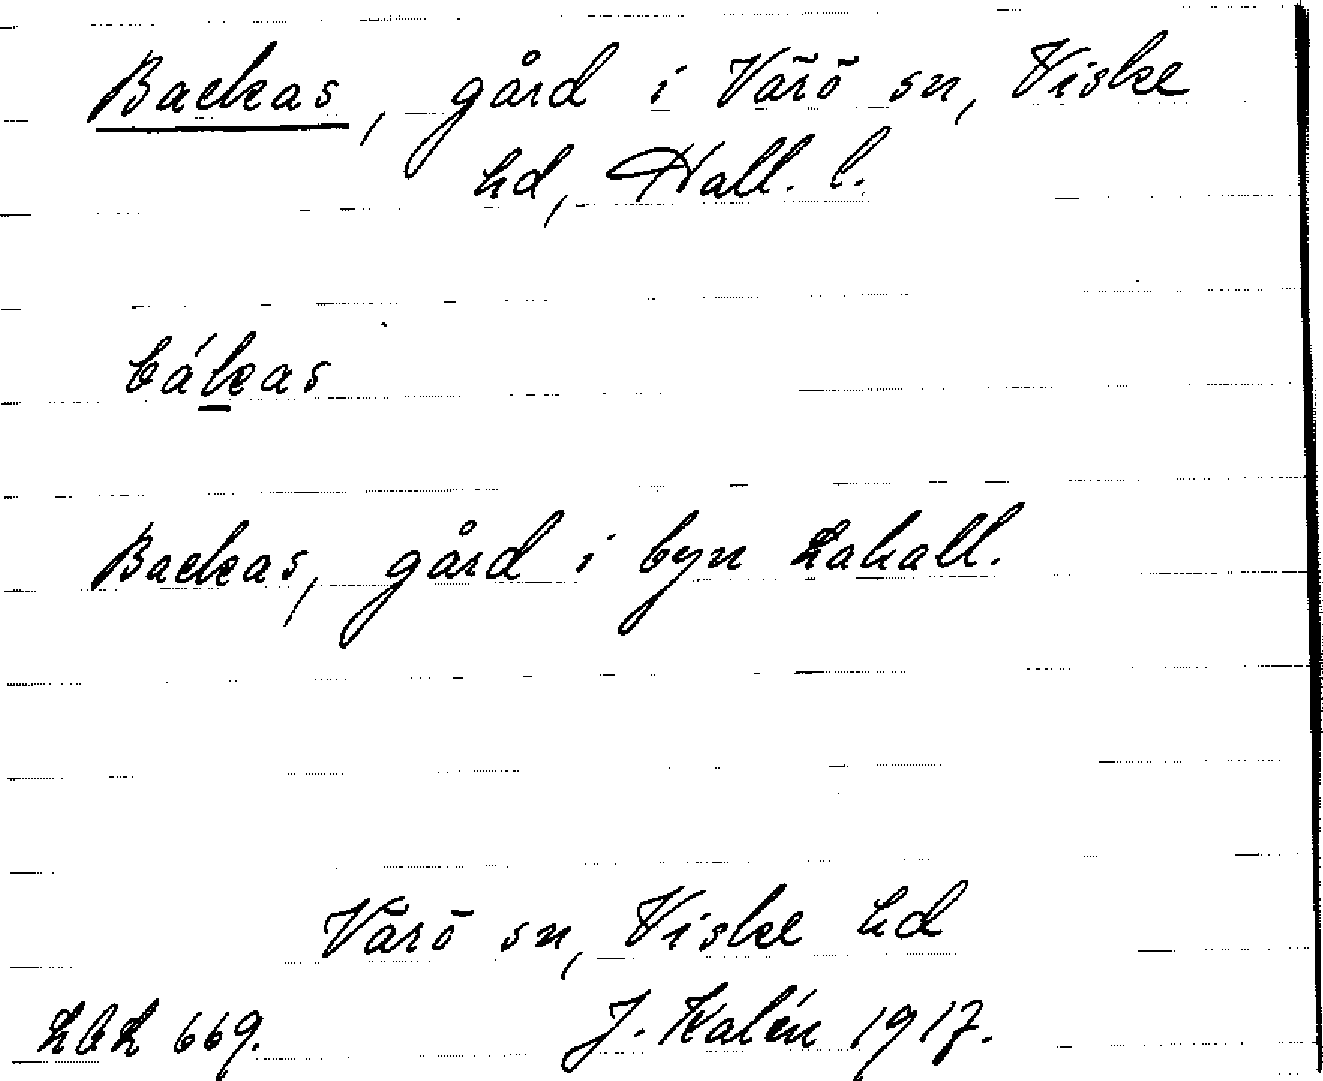 Backas, gård i Värö sn, Viske
hd, Hall. l.
bákas
Backas, gård i byn Lahall.
Värö sn, Viske hd
669. J. Kalén 1917.